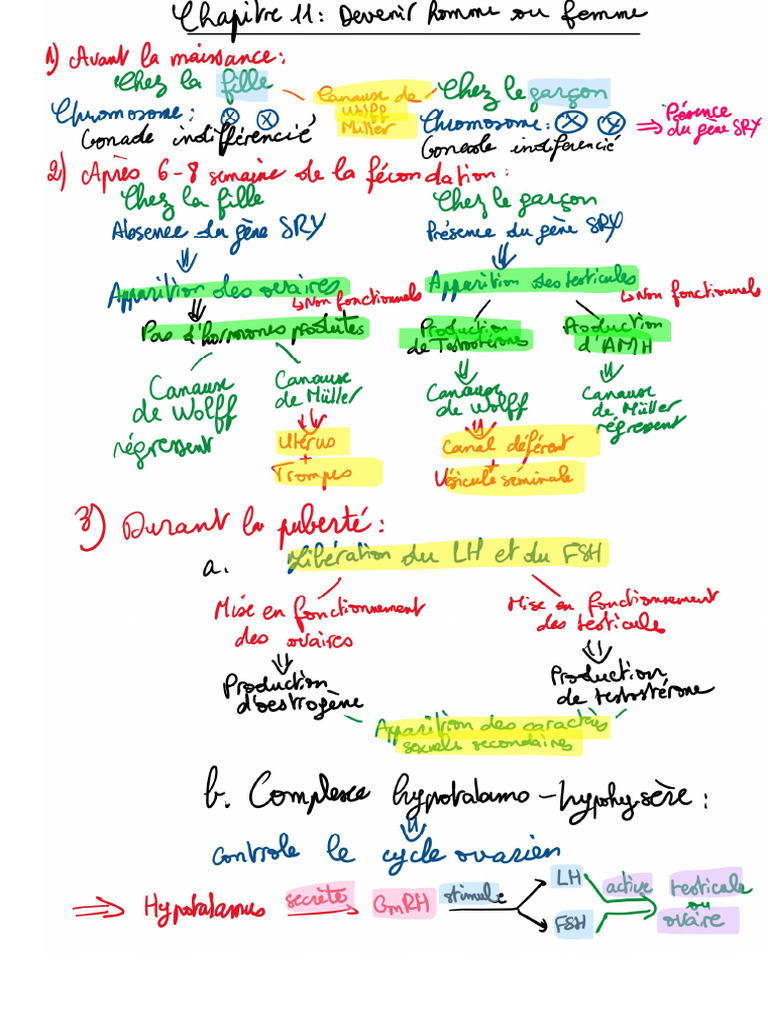 Chapitre 11: Devenir homme ou femme
1) Avant la naissance:
Chez la fille
Canause de Wolff Müller
Chez le garçon
Chromosome: X X
Chromosome: X Y
=> Présence du gène SRY
Gonade indifférencié
Gonade indiferencié
2) Après 6-8 semaine de la fécondation:
Chez la fille
Chez le garçon
Absence du gène SRY
Présence du gène SRY
Apparition des ovaires
Apparition des testicules
↳ Non fonctionnels
↳ Non fonctionnels
Pas d'hormones produites
Production de Testostérones
Production d'AMH
Canause de Wolff régressent
Canause de Müller
Canause de Wolff
Canause de Müller régressent
Utérus + Trompes
Canal déférent + Vésicule séminale
3) Durant la puberté:
a. Libération du LH et du FSH
Mise en fonctionnement des ovaires
Mise en fonctionnement des testicule
Production d'oestrogène
Production de testostérone
Apparition des caractères sexuels secondaires
b. Complexe hypotalamo-hypohysère:
Controle le cycle ovarien
=> Hypotalamus secrète GmRH stimule LH FSH active testicule ou ovaire